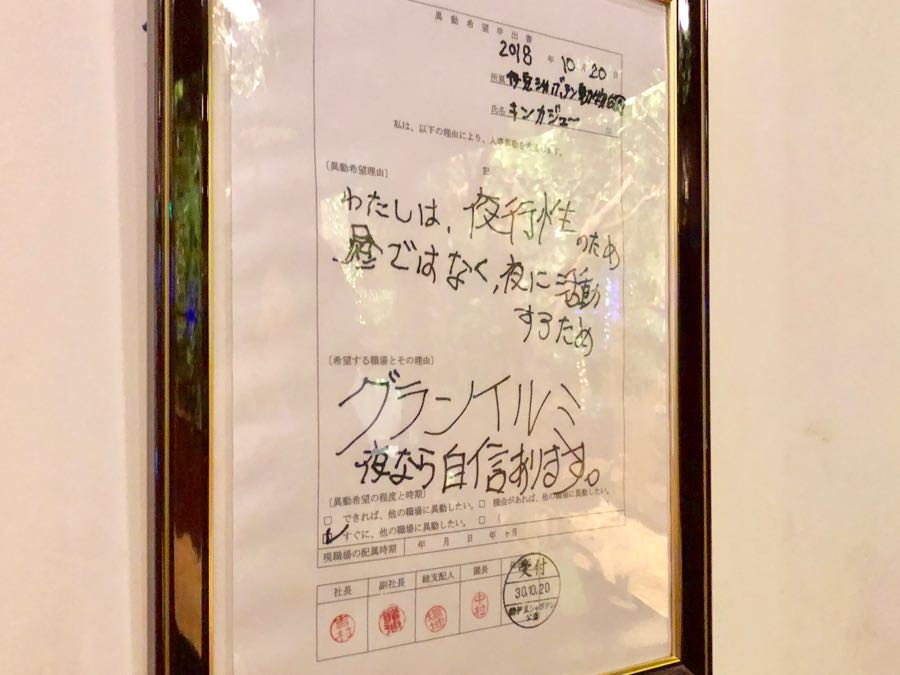 異動希望申出書
2018 年 10 月 20 日
所属 伊豆シャボテン動物公園
氏名 キンカジュー 印
私は、以下の理由により、人事異動を希望します。
記
[異動希望理由]
わたしは、夜行性のため
昼ではなく、夜に活動
するため
[希望する職場とその理由]
グランイルミ
夜なら自信あります。
[異動希望の程度と時期]
□ できれば、他の職場に異動したい。 □ 機会があれば、他の職場に異動したい。
☑ すぐに、他の職場に異動したい。 □ (
現職場の配属時期 年 月 日 年 ヶ月
社長 副社長 総支配人 園長
吉村 中村
受付
30.10.20
伊豆シャボテン
公園